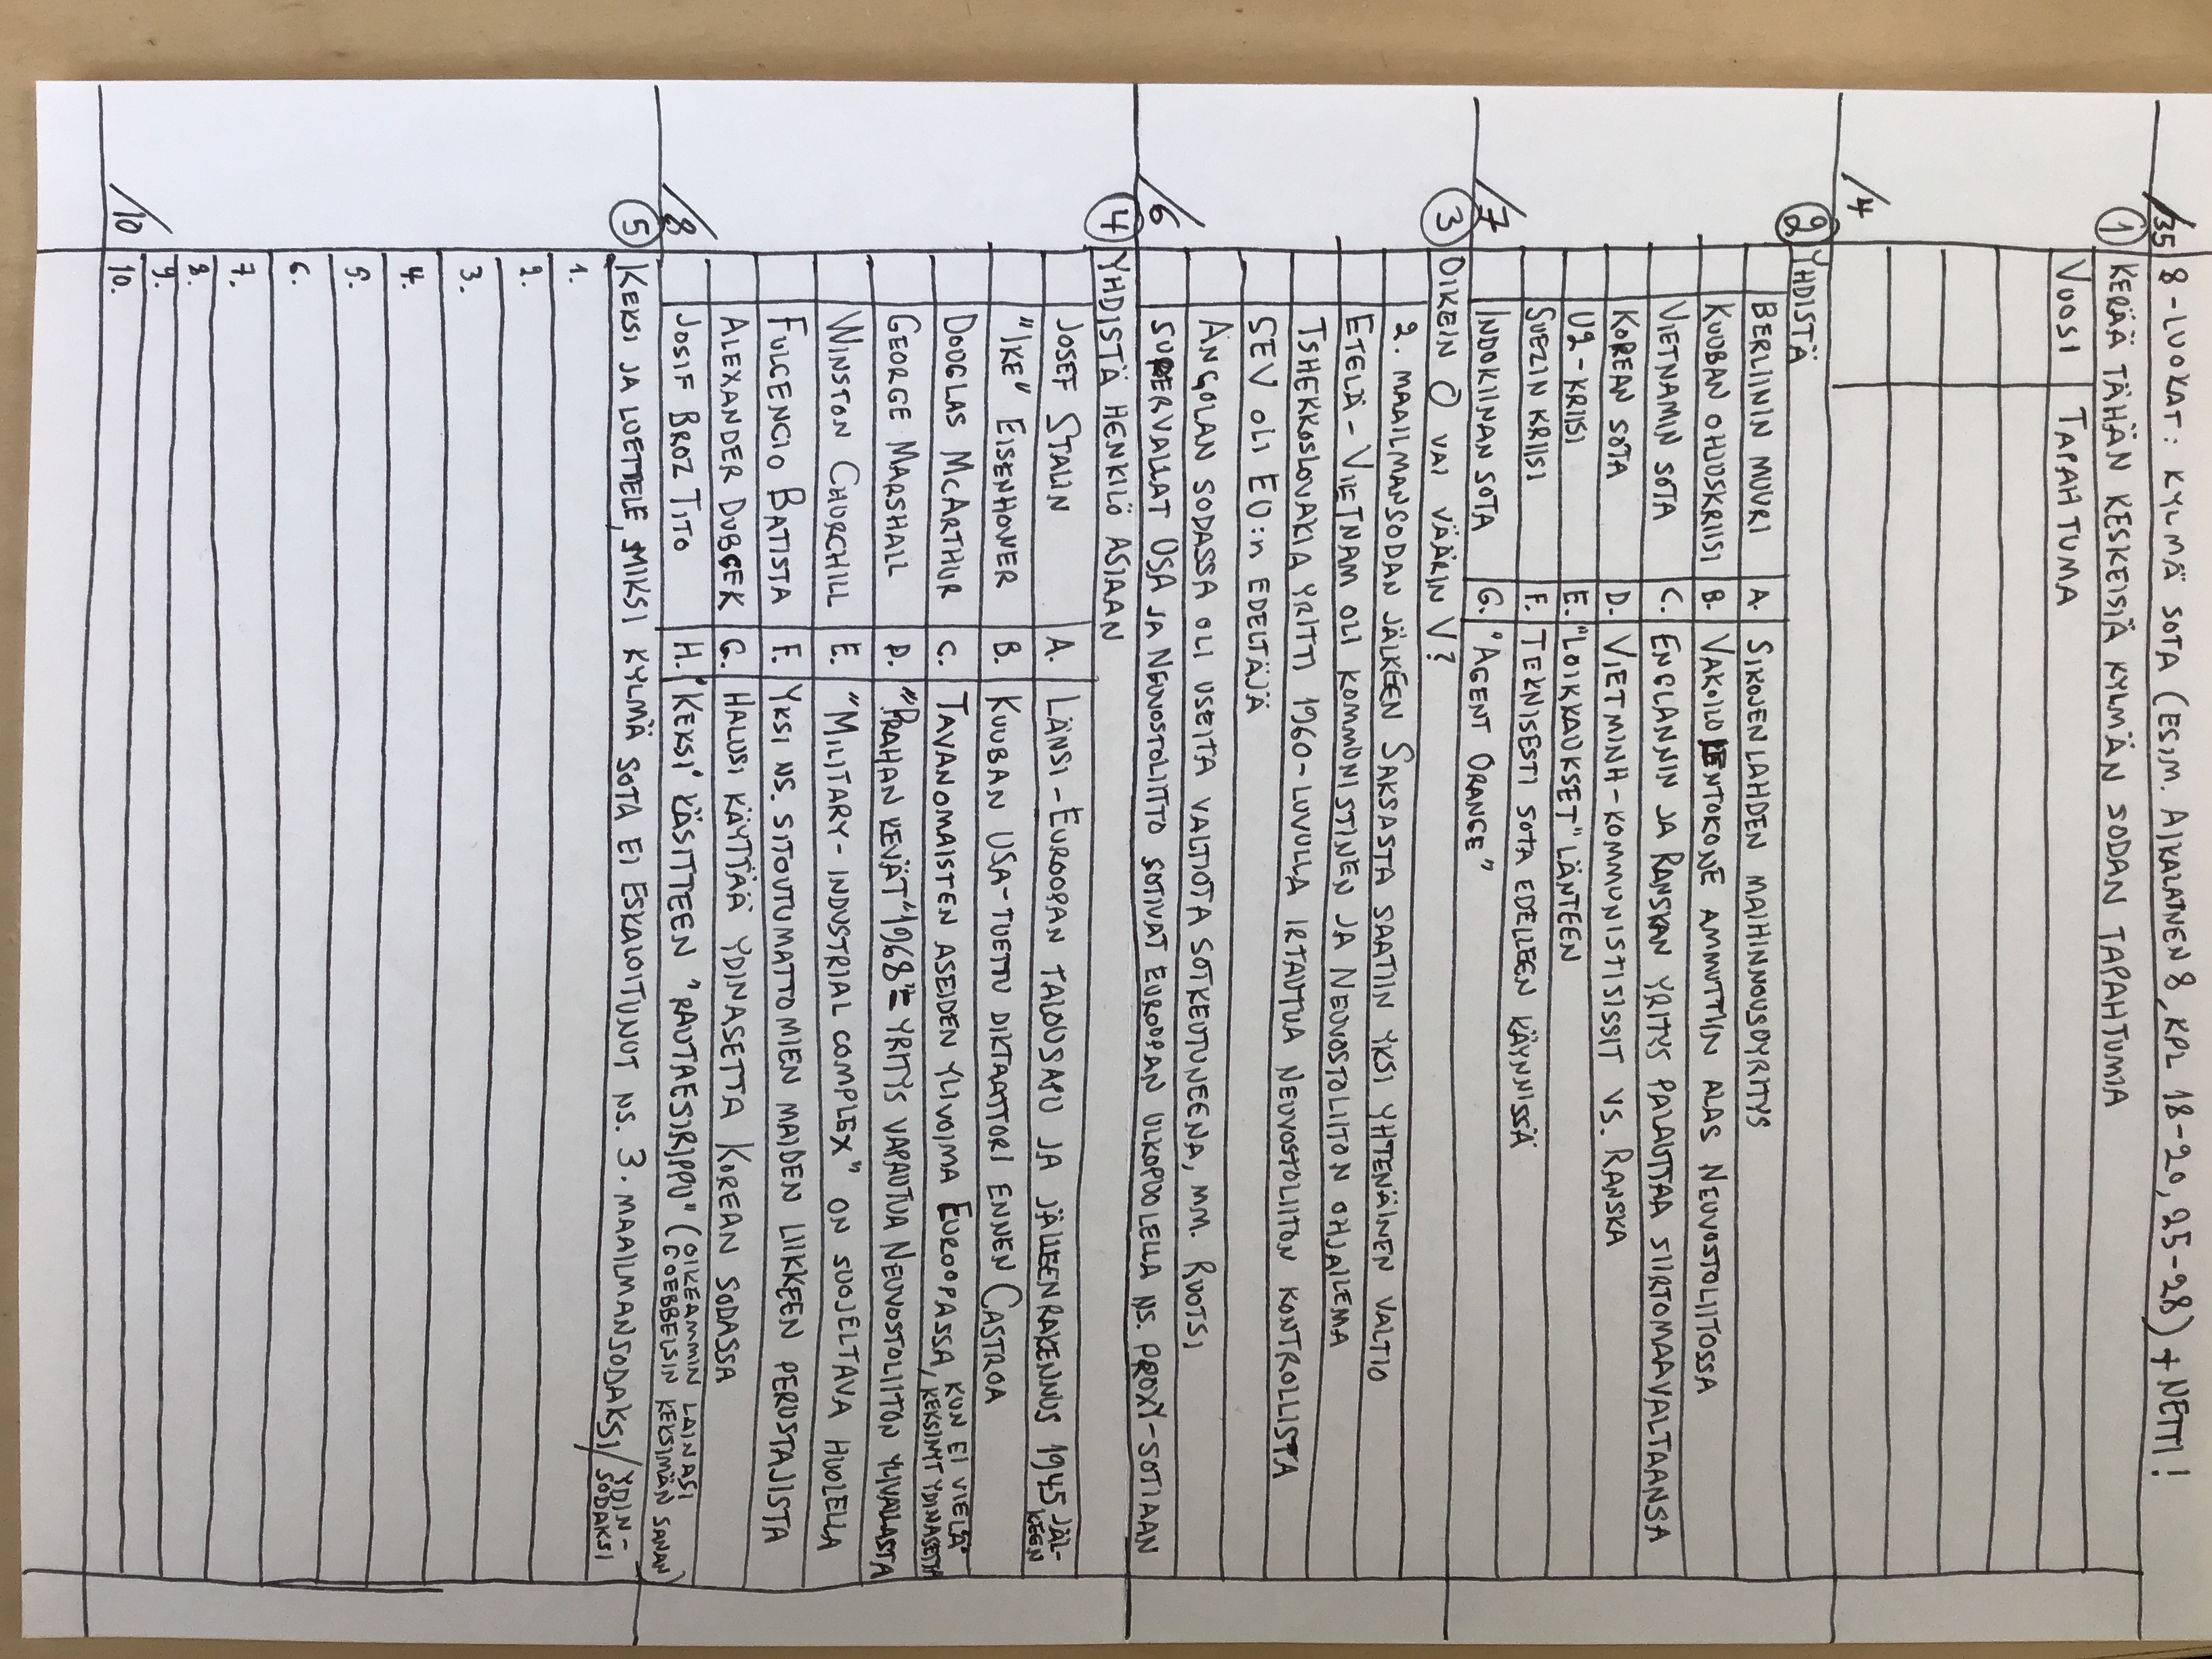 /35 8-LUOKAT: KYLMÄ SOTA (ESIM. AIKALAINEN 8, KPL 18-20, 25-28) + NETTI!
① KERÄÄ TÄHÄN KESKEISIÄ KYLMÄN SODAN TAPAHTUMIA
VUOSI TAPAHTUMA
/4
② YHDISTÄ
BERLIININ MUURI A. SIKOJENLAHDEN MAIHINNOUSUYRITYS
KUUBAN OHJUSKRIISI B. VAKOILULENTOKONE AMMUTTIIN ALAS NEUVOSTOLIITOSSA
VIETNAMIN SOTA C. ENGLANNIN JA RANSKAN YRITYS PALAUTTAA SIIRTOMAAVALTAANSA
KOREAN SOTA D. VIETMINH-KOMMUNISTISISSIT VS. RANSKA
U2-KRIISI E. "LOIKKAUKSET" LÄNTEEN
SUEZIN KRIISI F. TEKNISESTI SOTA EDELLEEN KÄYNNISSÄ
/7 INDOKIINAN SOTA G. "AGENT ORANGE"
③ OIKEIN O VAI VÄÄRIN V?
2. MAAILMANSODAN JÄLKEEN SAKSASTA SAATIIN YKSI YHTENÄINEN VALTIO
ETELÄ-VIETNAM OLI KOMMUNISTINEN JA NEUVOSTOLIITON OHJAILEMA
TSHEKKOSLOVAKIA YRITTI 1960-LUVULLA IRTAUTUA NEUVOSTOLIITON KONTROLLISTA
SEV OLI EU:n EDELTÄJÄ
ANGOLAN SODASSA OLI USEITA VALTIOTA SOTKEUTUNEENA, MM. RUOTSI
/6 SUPERVALLAT USA JA NEUVOSTOLIITTO SOTIVAT EUROOPAN ULKOPUOLELLA NS. PROXY-SOTIAAN
④ YHDISTÄ HENKILÖ ASIAAN
JOSEF STALIN A. LÄNSI-EUROOPAN TALOUSAPU JA JÄLLEENRAKENNUS 1945 JÄL-
KEEN
"IKE" EISENHOWER B. KUUBAN USA-TUETTU DIKTAATTORI ENNEN CASTROA
DOUGLAS MCARTHUR C. TAVANOMAISTEN ASEIDEN YLIVOIMA EUROOPASSA, KUN EI VIELÄ
KEKSINYT YDINASETTA
GEORGE MARSHALL D. "PRAHAN KEVÄT" 1968 = YRITYS VAPAUTUA NEUVOSTOLIITON YLIVALLASTA
WINSTON CHURCHILL E. "MILITARY-INDUSTRIAL COMPLEX" ON SUOJELTAVA HUOLELLA
FULCENCIO BATISTA F. YKSI NS. SITOUTUMATTOMIEN MAIDEN LIIKKEEN PERUSTAJISTA
ALEXANDER DUBCEK G. HALUSI KÄYTTÄÄ YDINASETTA KOREAN SODASSA
/8 JOSIF BROZ TITO H. 'KEKSI' KÄSITTEEN "RAUTAESIRIPPU" (OIKEAMMIN LAINASI
GOEBBELSIN KEKSIMÄN SANAN)
⑤ KEKSI JA LUETTELE, MIKSI KYLMÄ SOTA EI ESKALOITUNUT NS. 3. MAAILMANSODAKSI/YDIN-
SODAKSI
1.
2.
3.
4.
5.
6.
7.
8.
9.
/10 10.